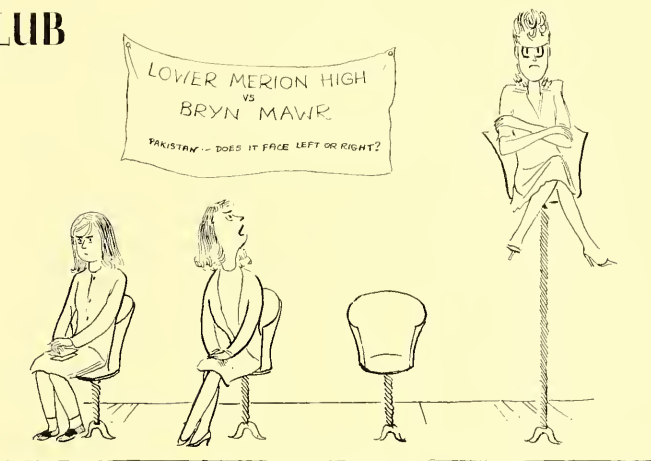 LUB
LOWER MERION HIGH
VS
BRYN MAWR
PAKISTAN -- DOES IT FACE LEFT OR RIGHT?